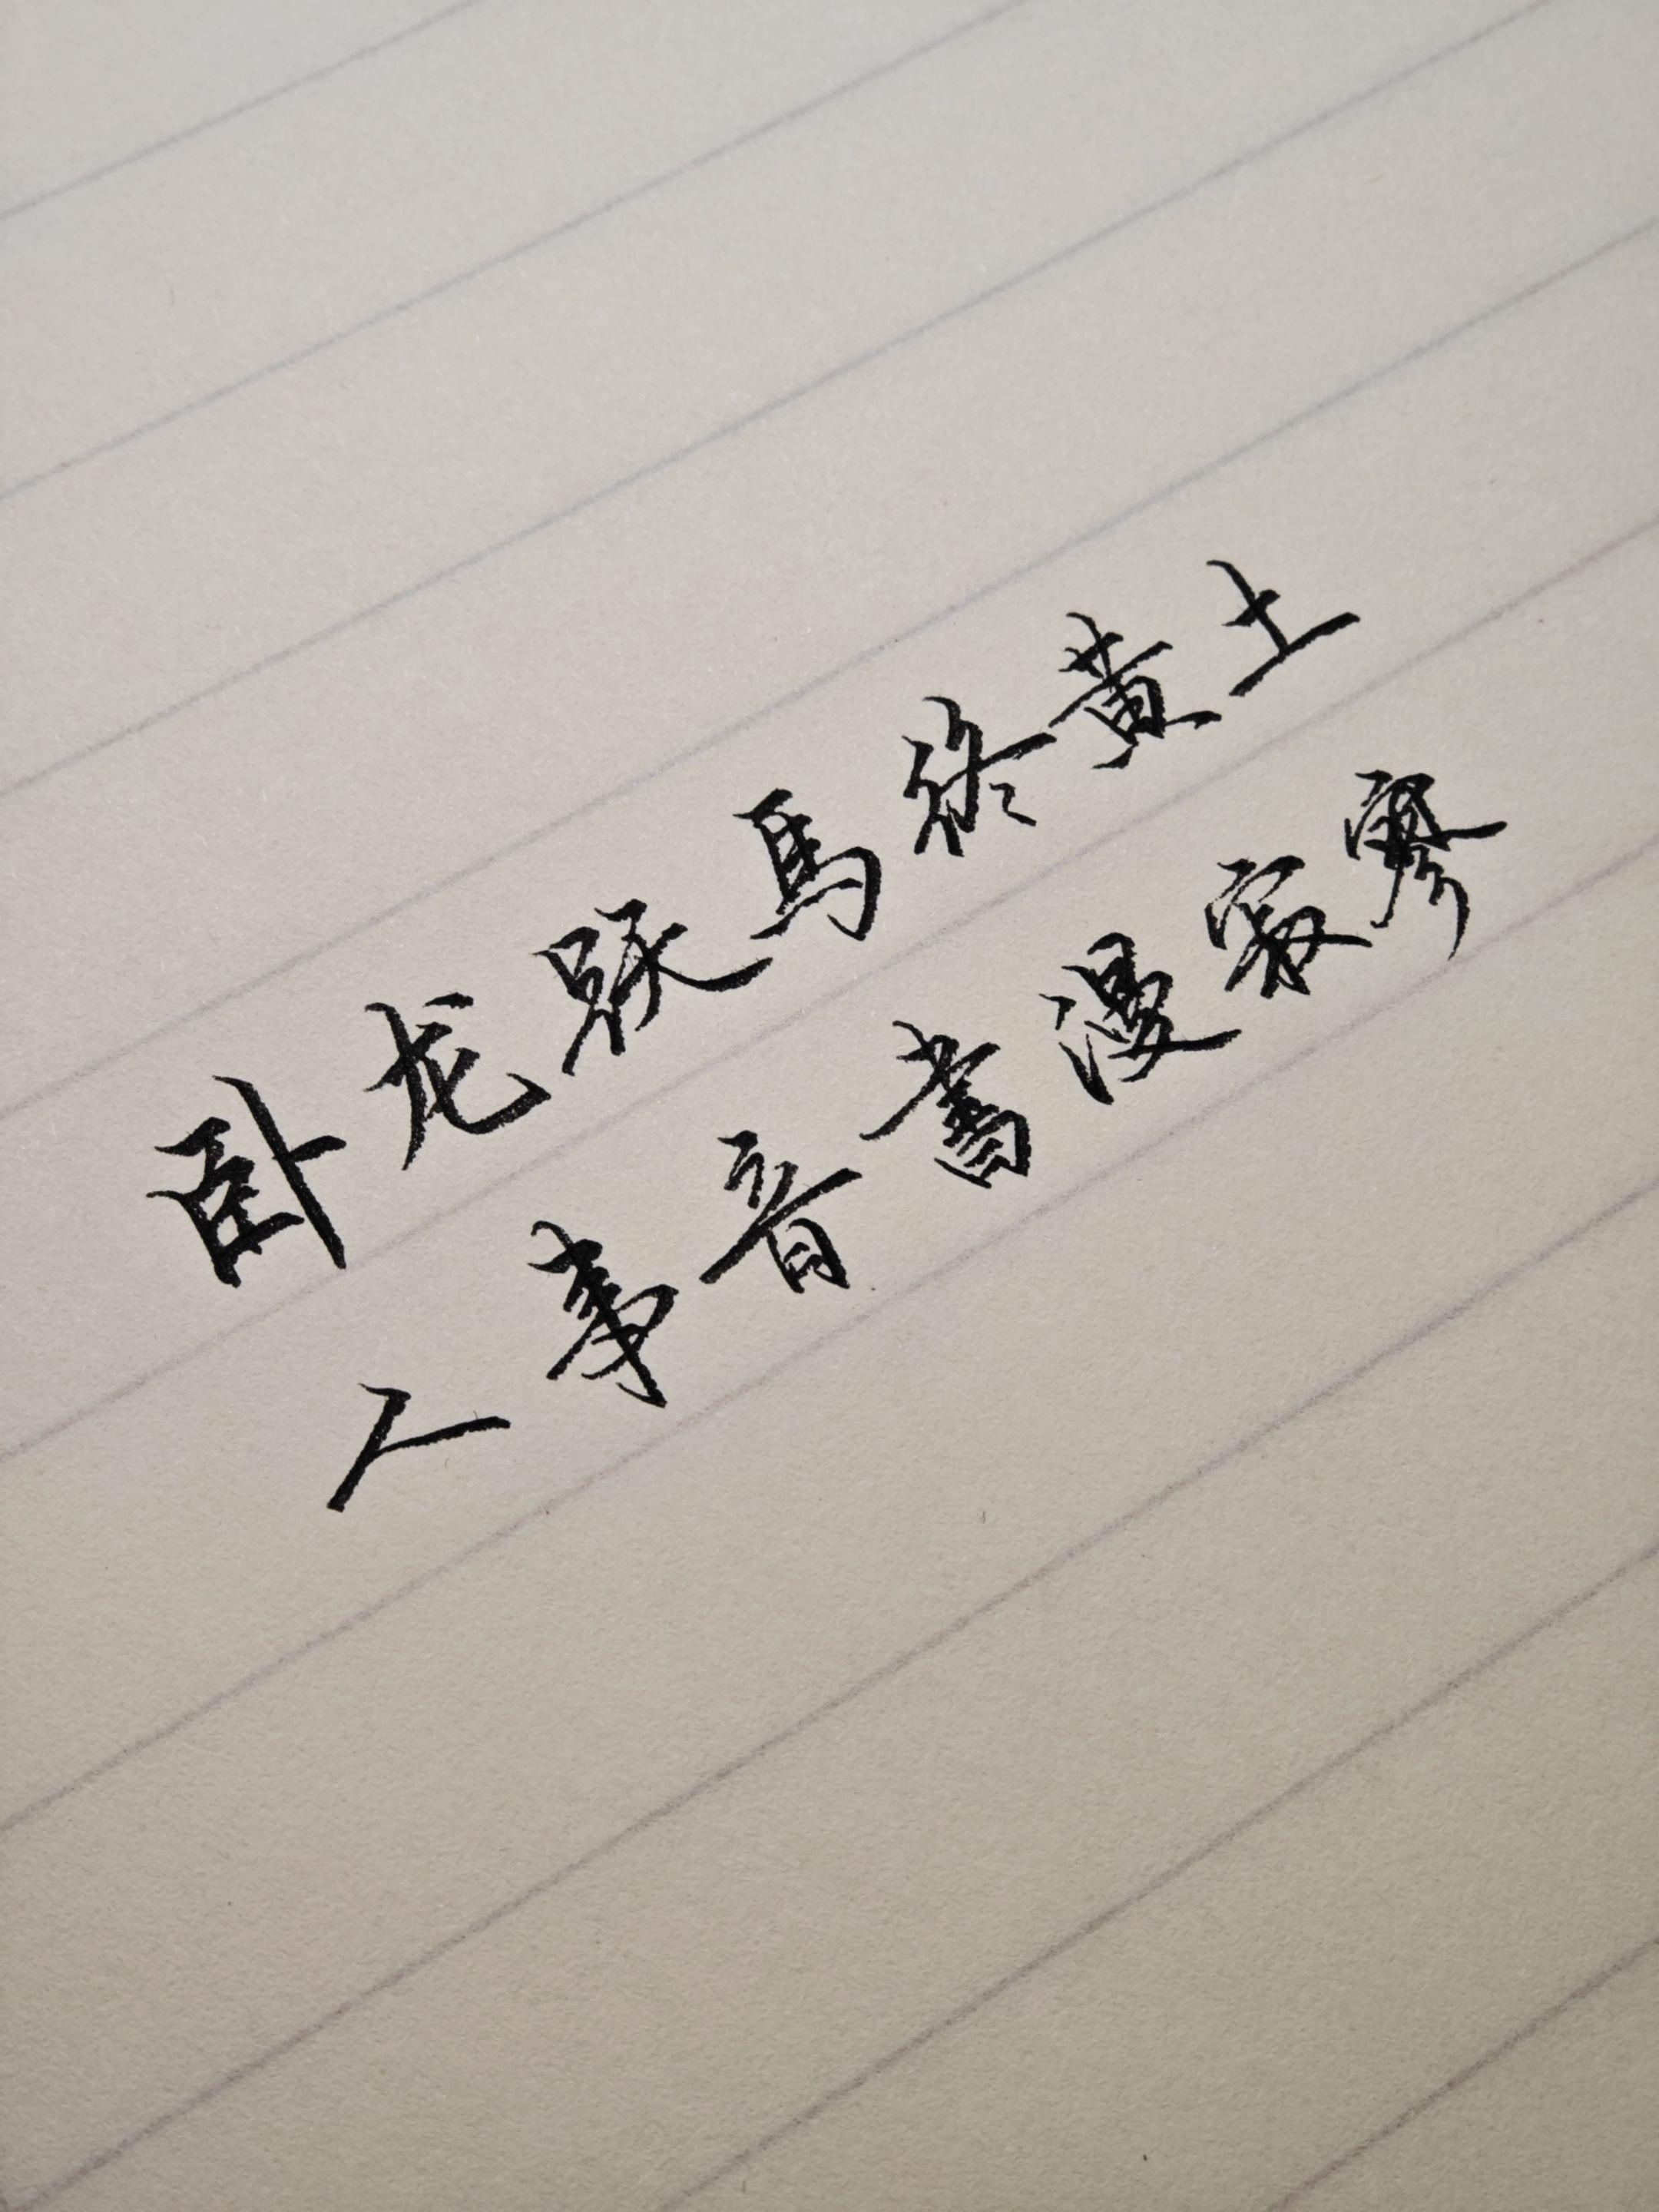 卧龙跃馬终黄土
人事音書漫寂寥